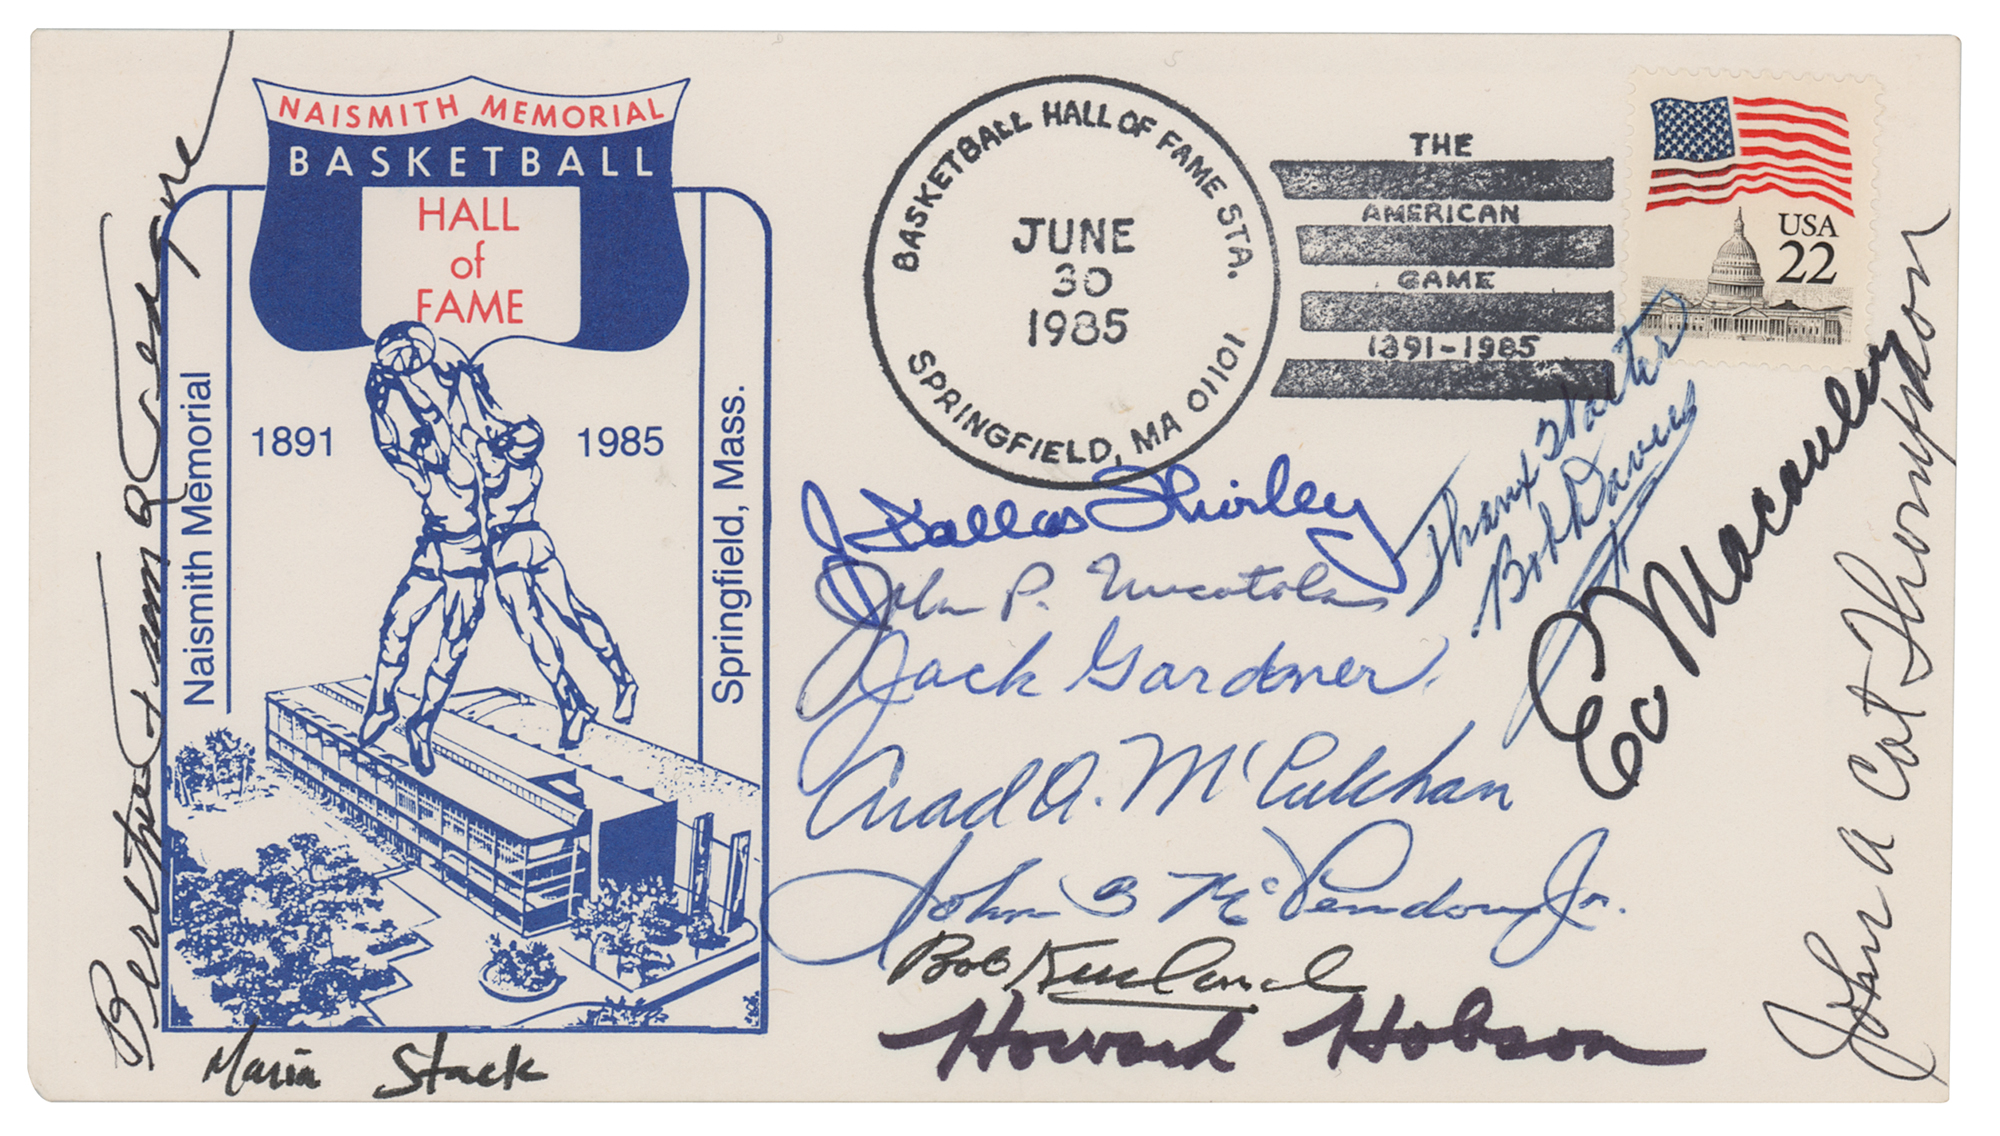 NAISMITH MEMORIAL
BASKETBALL
HALL
of
FAME
1891
1985
Naismith Memorial
Springfield, Mass.
BASKETBALL HALL OF FAME STA.
JUNE
30
1985
SPRINGFIELD, MA 01101
THE
AMERICAN
GAME
1891-1985
USA
22
J. Dallas Shirley
John P. Nucatola
Jack Gardner
Arad A. McCutchan
John B McLendon Jr.
Bob Kurland
Howard Hobson
Bob Davies
Ed Macauley
John A Cat Thompson
Maria Stack